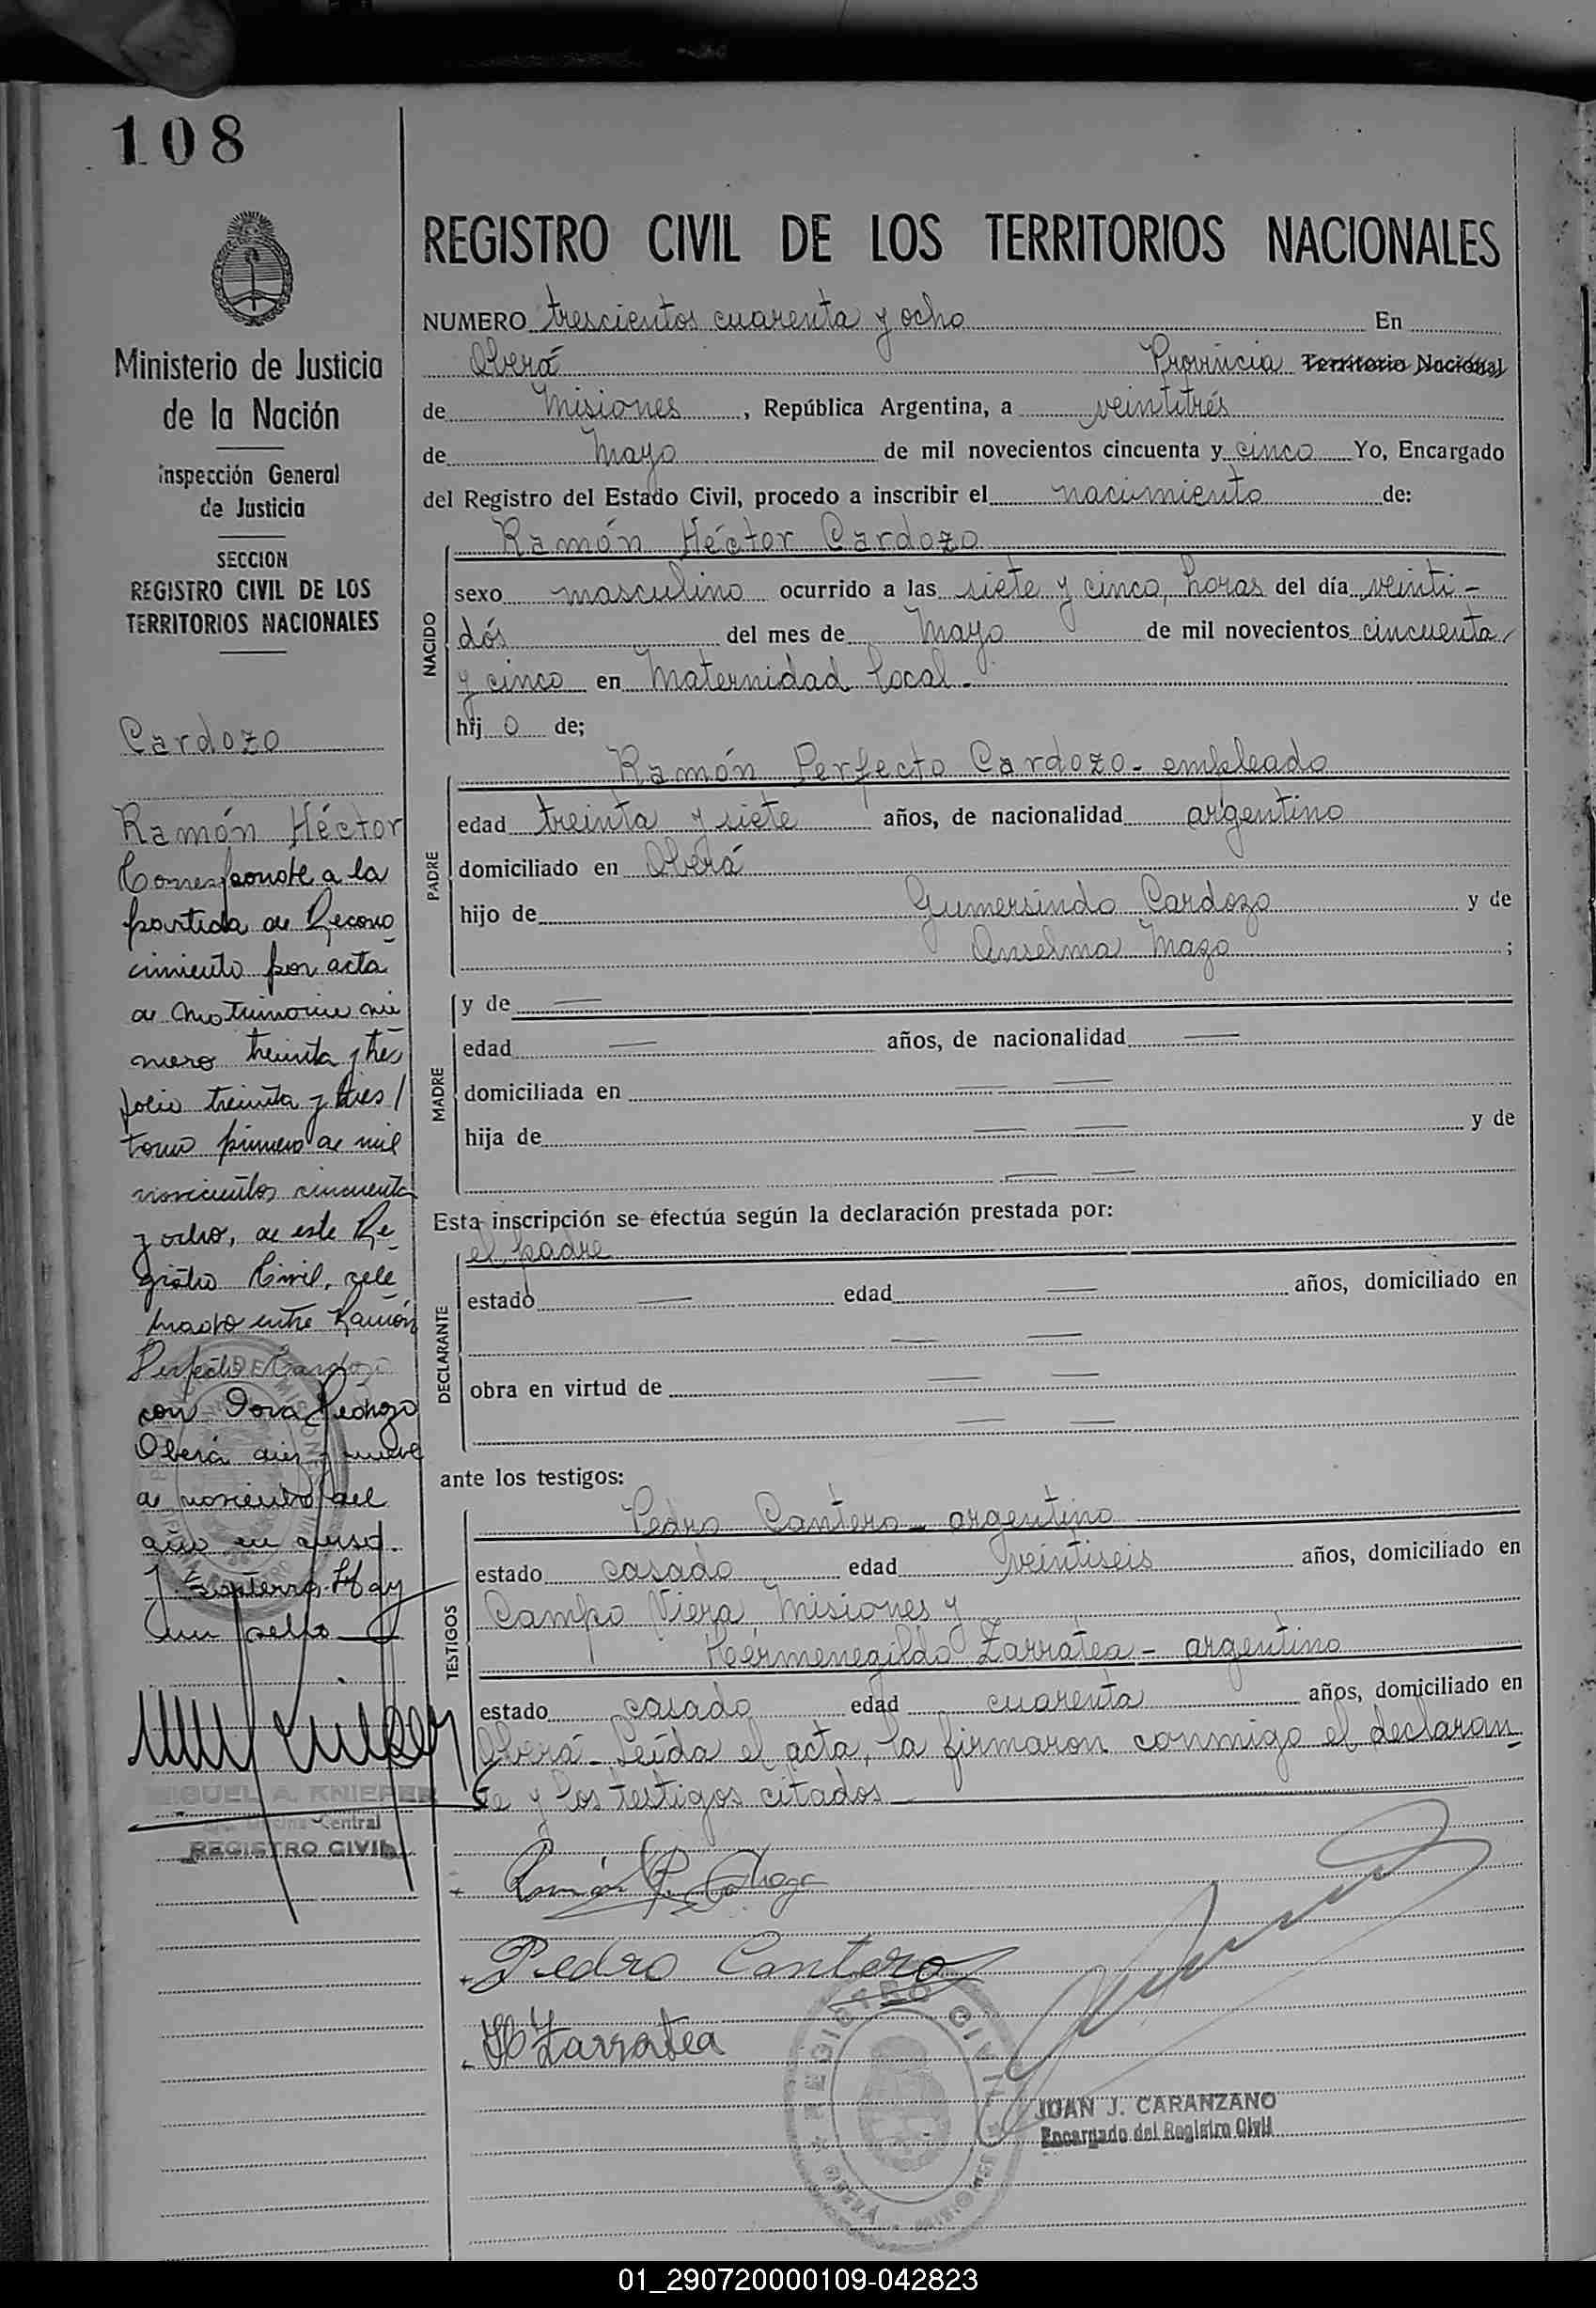 108
Ministerio de Justicia
de la Nación
Inspección General
de Justicia
SECCION
REGISTRO CIVIL DE LOS
TERRITORIOS NACIONALES
Cardozo
Ramón Héctor
Corresponde a la
partida de Recono
cimiento por acta
de Matrimonio nú
mero treinta y tres
folio treinta y tres /
tomo primero de mil
novecientos cincuenta
y ocho, de este Re-
gistro Civil, cele
brado entre Ramón
Perfecto Cardozo
con Dora
Oberá diez y nueve
de noviembre del
año en curso.
Hay
un sello
MIGUEL A. KNIEPER
Central
REGISTRO CIVIL
REGISTRO CIVIL DE LOS TERRITORIOS NACIONALES
NUMERO trescientos cuarenta y ocho En
Oberá Provincia Territorio Nacional
de Misiones, República Argentina, a veintitrés
de Mayo de mil novecientos cincuenta y cinco Yo, Encargado
del Registro del Estado Civil, procedo a inscribir el nacimiento de:
NACIDO
Ramón Héctor Cardozo
sexo masculino ocurrido a las siete y cinco, horas del día veinti-
dós del mes de Mayo de mil novecientos cincuenta
y cinco en Maternidad local.-
hij o de;
PADRE
Ramón Perfecto Cardozo - empleado
edad treinta y siete años, de nacionalidad argentino
domiciliado en Oberá
hijo de Gumersindo Cardozo y de
Anselma Mazo ;
MADRE
y de —
edad — años, de nacionalidad —
domiciliada en — —
hija de — — y de
— —
Esta inscripción se efectúa según la declaración prestada por:
DECLARANTE
el padre
estado — edad — años, domiciliado en
— —
obra en virtud de — —
— —
ante los testigos:
TESTIGOS
Pedro Cantero - argentino
estado casado edad veintiseis años, domiciliado en
Campo Viera, Misiones y
Hermenegildo Zarratea - argentino
estado casado edad cuarenta años, domiciliado en
Oberá - Leída el acta, la firmaron conmigo el declaran-
te y los testigos citados
Pedro Cantero
H Zarratea
REGISTRO CIVIL
OBERÁ MISIONES
JUAN J. CARANZANO
Encargado del Registro Civil
01_290720000109-042823